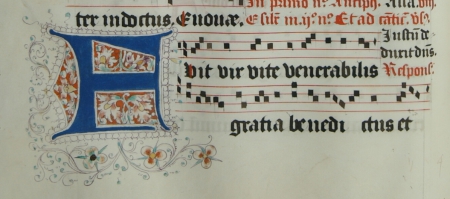 In primo n̄. Antiph. Alla. 
ter indoctus. Euouae. Et ad cantic̄.
Iustū de
duxit dn̄s.
Fuit vir vite venerabilis Respons.
gratia benedi ctus et